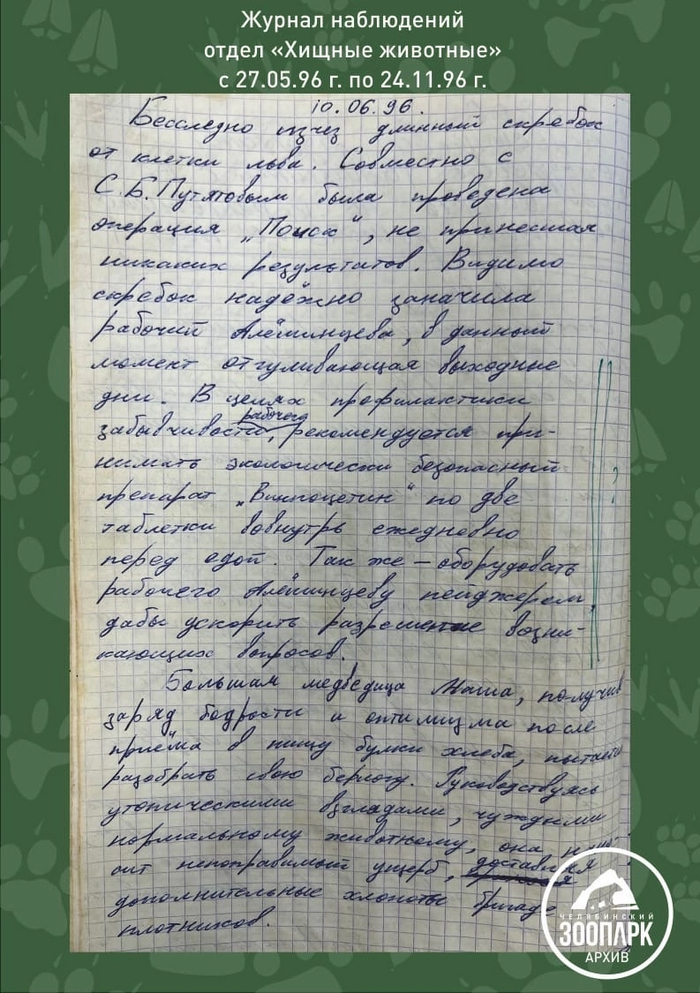 Журнал наблюдений
отдел «Хищные животные»
с 27.05.96 г. по 24.11.96 г.
10.06.96.
Бесследно исчез длинный скребок
от клетки льва. Совместно с
С.Б.Путятовым была проведена
операция „Поиск“, не принесшая
никаких результатов. Видимо
скребок надёжно заначила
рабочий Алёшинцева, в данный
момент отгуливающая выходные
дни. В целях профилактики
рабочего
забывчивости, рекомендуется при-
нимать экологически безопасный
препарат „Винпоцетин“ по две
таблетки вовнутрь ежедневно
перед едой. Так же – оборудовать
рабочего Алёшинцеву пейджером,
дабы ускорить разрешение возни-
кающих вопросов.
Большая медведица Маша, получив
заряд бодрости и оптимизма после
приёма в пищу булки хлеба, пытается
разобрать свою берлогу. Руководствуясь
утопическими взглядами, чуждыми
нормальному животному, она
непоправимый ущерб, доставляя
дополнительные хлопоты бригаде
плотников.
ЧЕЛЯБИНСКИЙ
ЗООПАРК
АРХИВ